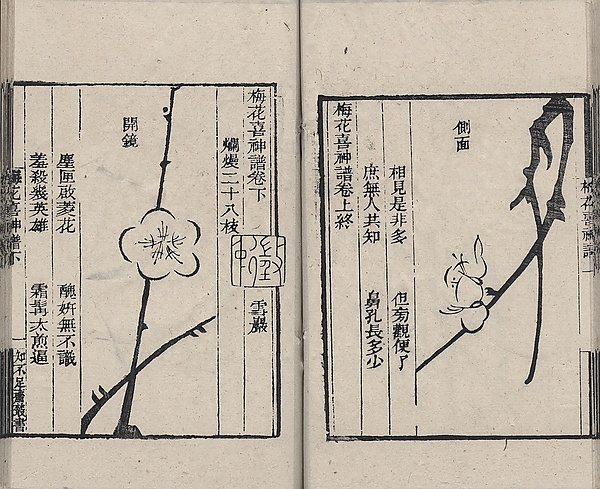 梅花喜神譜
側面
相見是非多　但旁觀便了
庶無人共知　鼻孔長多少
梅花喜神譜卷上終
梅花喜神譜卷下
爛熳二十八枝　雪巖
開鏡
塵匣啟菱花　醜妍無不識
羞殺幾英雄　霜髯太煎逼
梅花喜神譜下　一　知不足齋叢書